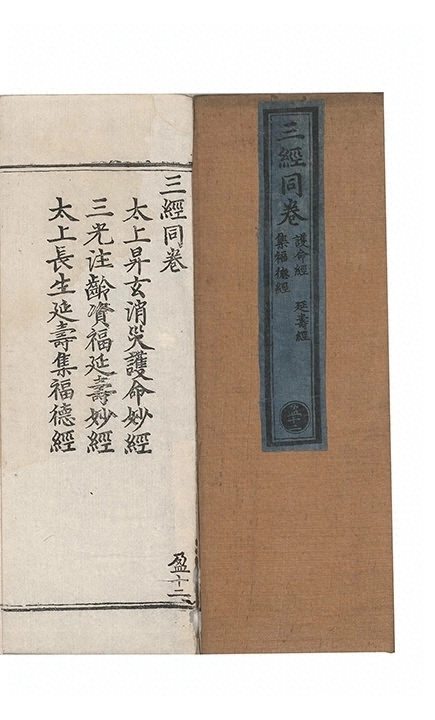 三經同卷
護命經 延壽經
集福德經
盈十二
三經同卷
太上昇玄消災護命妙經
三光注齡資福延壽妙經
太上長生延壽集福德經
盈十二